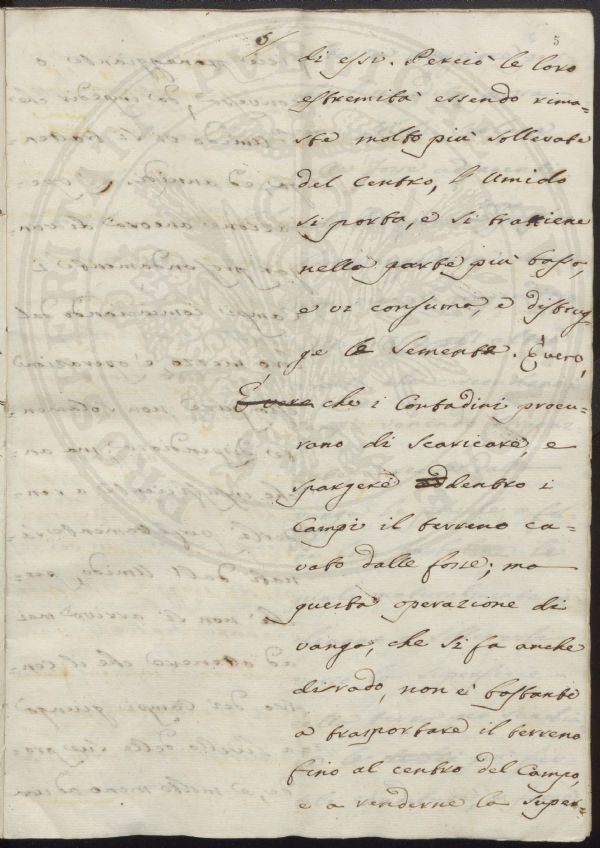 5 5
di essi. Perciò le loro
estremità essendo rima-
ste molto più sollevate
del Centro, l'Umido
si porta, e si trattiene
nella parte più bassa,
e vi consuma, e distrug-
ge le Sementa. È vero,
È vero che i Contadini procu-
rano di scaricare, e
spargere addentro i
Campi il terreno ca-
vato dalle fosse; ma
questa operazione di
vanga, che si fa anche
disrado, non è bastante
a trasportare il terreno
fino al centro del Campo,
e a renderne la super-